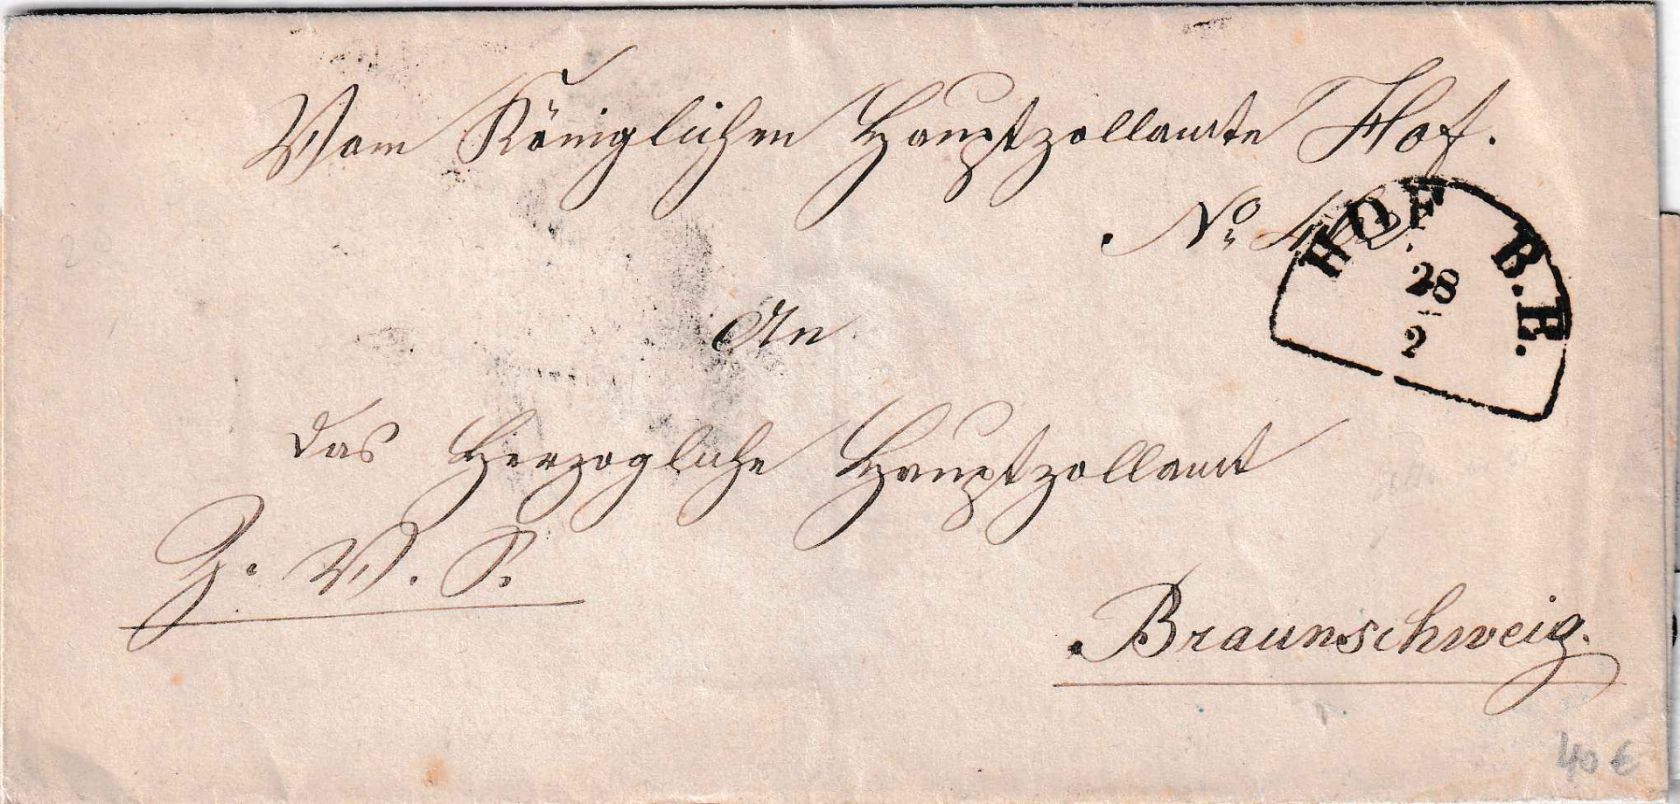 Vom Königlichen Hauptzollamte Hof.
No
HOF B.E.
28
2
An
das Herzogliche Hauptzollamt
Z. V. S.
Braunschweig.
40 €